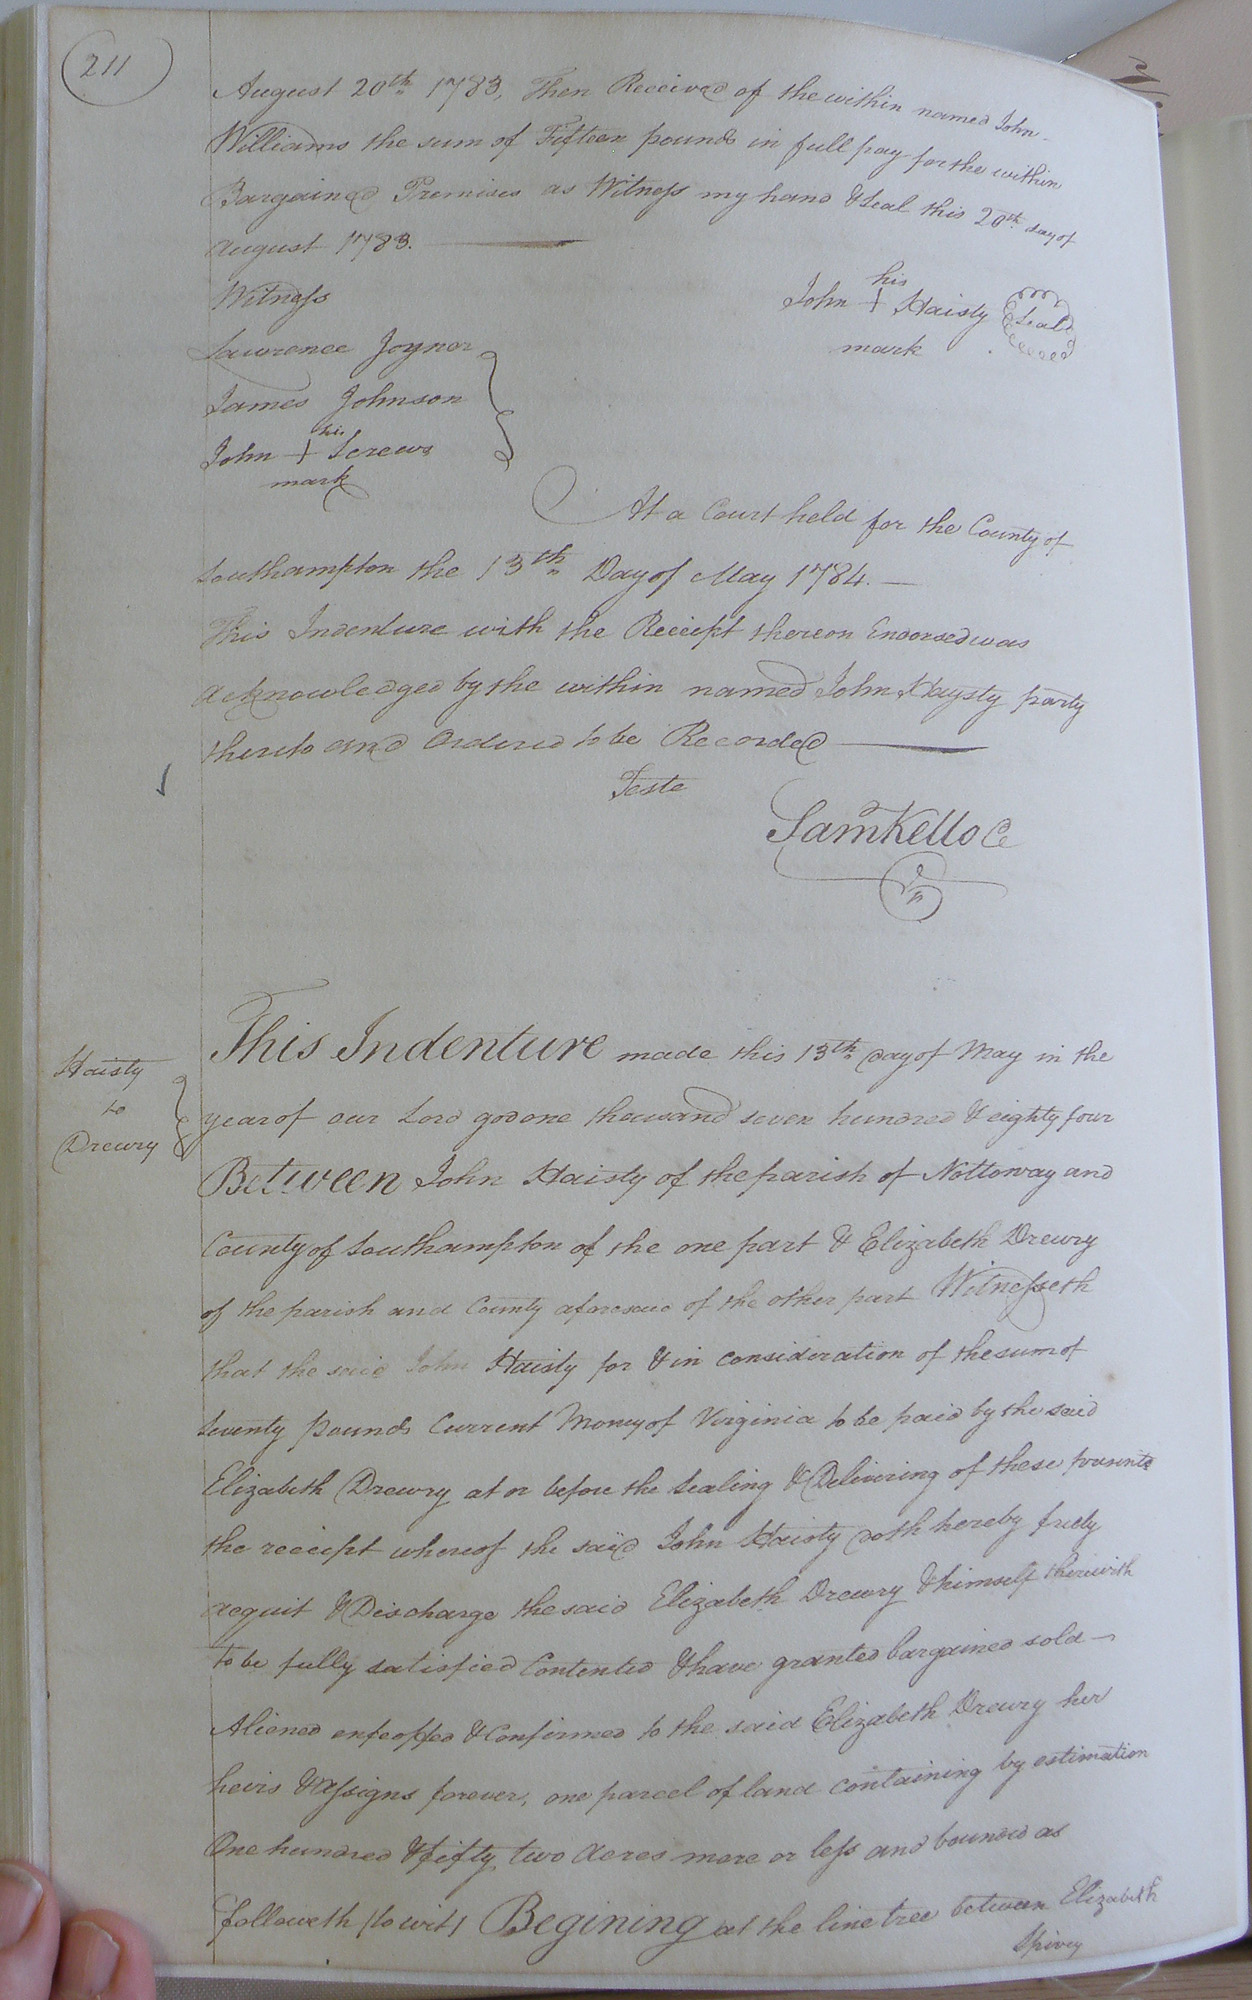 211
August 20th 1783, Then Received of the within named John
Williams the sum of Fifteen pounds in full pay for the within
Bargained Premises as Witness my hand & Seal this 20th day of
August 1783.
Witness
his
John + Haisty Seal
mark
Lawrence Joyner
James Johnson
his
John + Screws
mark
At a Court held for the County of
Southampton the 13th Day of May 1784.
This Indenture with the Receipt thereon Endorsed was
acknowledged by the within named John Haysty party
thereto and Ordered to be Recorded
Teste
Saml Kello Cl
Haisty
to
Drewry
This Indenture made this 13th day of May in the
year of our Lord god one thousand seven hundred & eighty four
Between John Haisty of the parish of Nottoway and
County of Southampton of the one part & Elizabeth Drewry
of the parish and County aforesaid of the other part Witnesseth
that the said John Haisty for & in consideration of the sum of
seventy pounds Current Money of Virginia to be paid by the said
Elizabeth Drewry at or before the Sealing & Delivering of these presents
the receipt whereof the said John Haisty doth hereby freely
acquit & Discharge the said Elizabeth Drewry & himself therewith
to be fully satisfied Contented & have granted bargained sold
Aliened enfeoffed & Confirmed to the said Elizabeth Drewry her
heirs & Assigns forever, one parcel of land containing by estimation
One hundred & fifty two Acres more or less and bounded as
followeth (to wit) Begining at the line tree between Elizabeth
Spivey